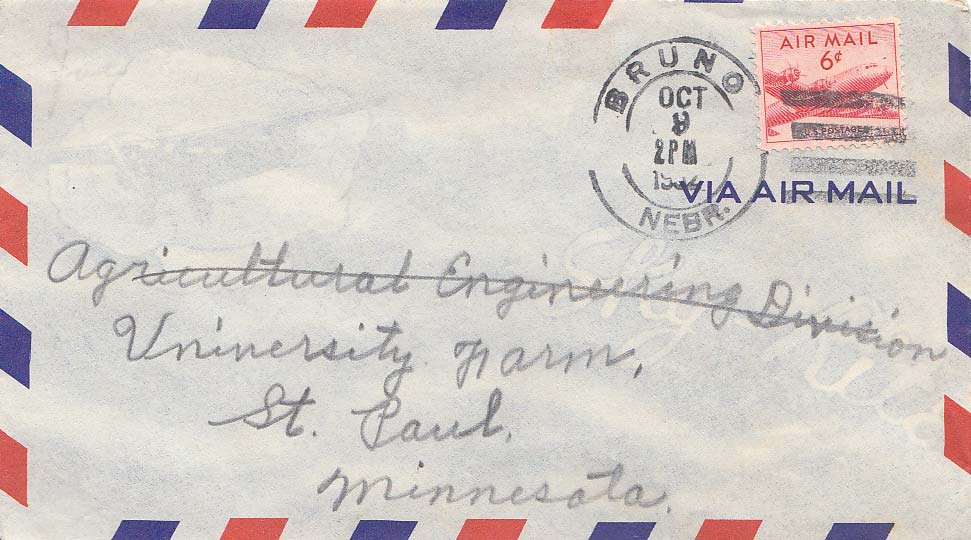 AIR MAIL
6¢
U.S. POSTAGE
BRUNO
OCT
2 PM
NEBR.
VIA AIR MAIL
Agricultural Engineering Division
University Farm,
St. Paul,
Minnesota.